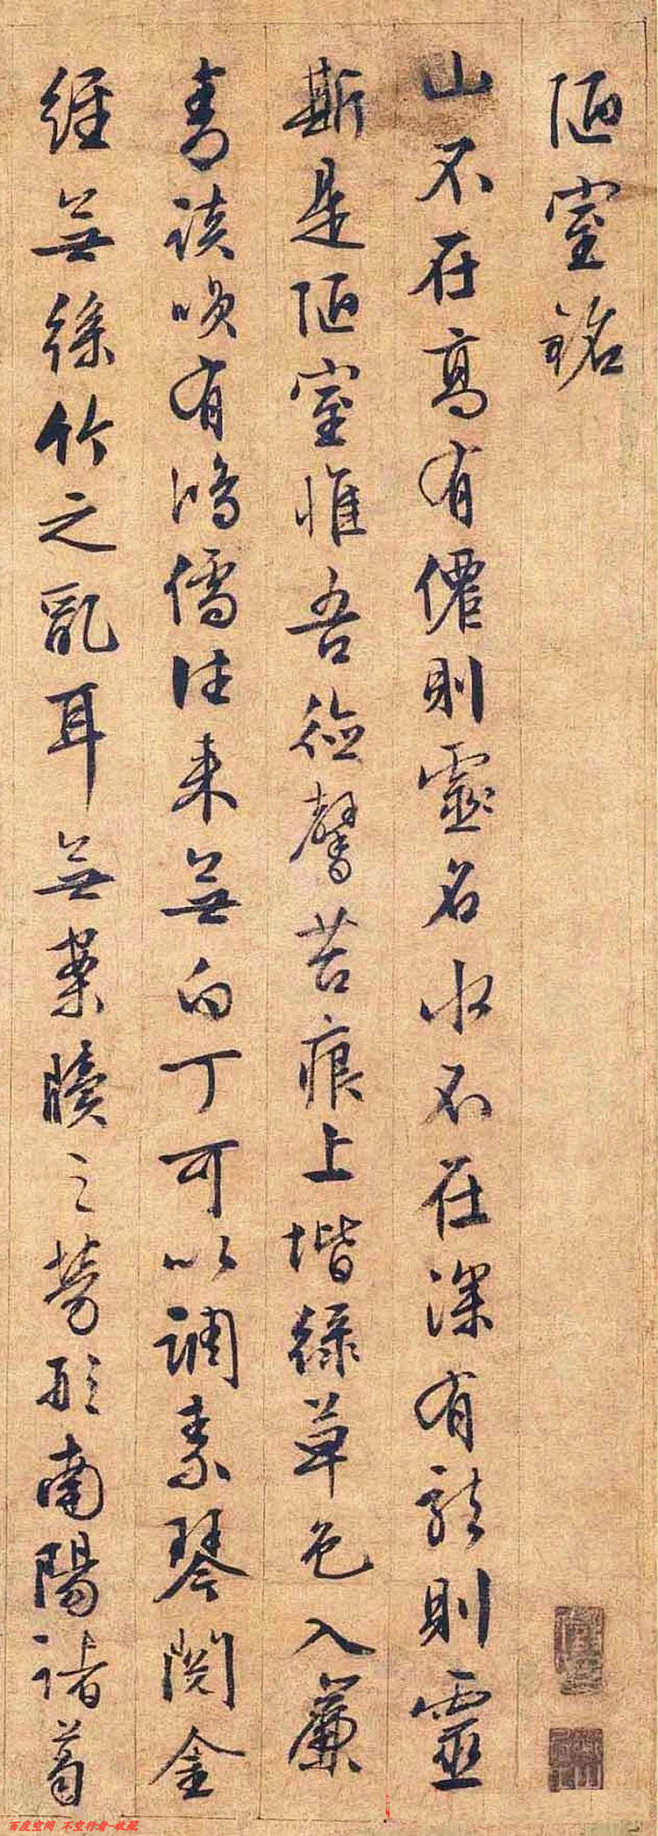 陋室銘
山不在高有僊則靈名水不在深有龍則靈
斯是陋室惟吾德馨苔痕上堦綠草色入簾
青談咲有鴻儒往来無白丁可以調素琴閱金
經無絲竹之亂耳無案牘之勞形南陽諸葛
百度空间 不空行者-收藏